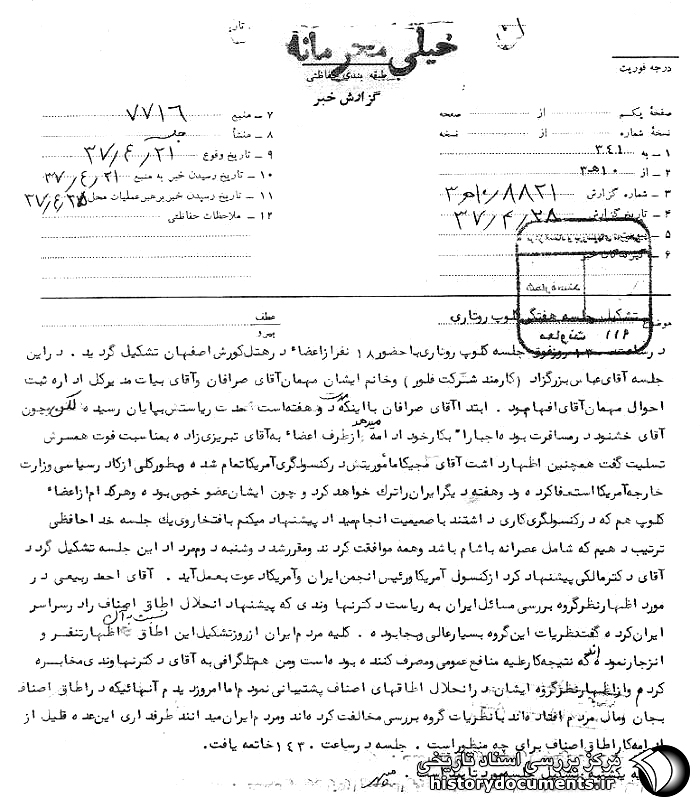 خیلی محرمانه
طبقه بندی حفاظتی
گزارش خبر
درجه فوریت
صفحهٔ یکم از صفحه
نسخهٔ شماره از نسخه
۱ – به ۳۴۱
۲ – از ۱۰هـ۳
۳ – شماره گزارش
۴ – تاریخ گزارش ۳۷/۴/۲۸
۵ –
۶ – گیرندگان خبر
۷ – منبع ۷۷۱۶
۸ – منشأ
۹ – تاریخ وقوع ۳۷/۴/۲۱
۱۰ – تاریخ رسیدن خبر به منبع ۳۷/۴/۲۱
۱۱ – تاریخ رسیدن خبر برهبر عملیات محل
۱۲ – ملاحظات حفاظتی
موضوع تشکیل جلسه هفتگی کلوپ روتاری
عطف
پیرو
در ساعت روز فوق جلسه کلوپ روتاری با حضور ۱۸ نفر از اعضاء در هتل کورش اصفهان تشکیل گردید . در این
جلسه آقای عباس بزرگزاد (کارمند شرکت فلور) و خانم ایشان مهمان آقای صرافان و آقای بیات مدیر کل اداره ثبت
احوال مهمان آقای افهام بود . ابتدا آقای صرافان با اینکه دو هفته است مدت ریاستش بپایان رسیده لکن چون
آقای خشنود در مسافرت بوده اجباراً بکار خود ادامه میدهد از طرف اعضاء به آقای تبریزی زاده بمناسبت فوت همسرش
تسلیت گفت همچنین اظهار داشت آقای مجیکا مأموریتش در کنسولگری آمریکا تمام شده و بطور کلی از کادر سیاسی وزارت
خارجه آمریکا استعفا کرده و دو هفته دیگر ایران را ترک خواهد کرد و چون ایشان عضو خوبی بوده و هر کدام از اعضاء
کلوپ هم که در کنسولگری کاری داشتند با صمیمیت انجام میداد پیشنهاد میکنم بافتخار وی یک جلسه خداحافظی
ترتیب دهیم که شامل عصرانه یا شام باشد و همه موافقت کردند و مقرر شد دوشنبه دوم مرداد این جلسه تشکیل گردد
آقای دکتر مالکی پیشنهاد کرد از کنسول آمریکا و رئیس انجمن ایران و آمریکا دعوت بعمل آید . آقای احمد ربیعی در
مورد اظهار نظر گروه بررسی مسائل ایران به ریاست دکتر نهاوندی که پیشنهاد انحلال اطاق اصناف را در سراسر
ایران کرده گفت نظریات این گروه بسیار عالی و بجا بوده . کلیه مردم ایران از روز تشکیل این اطاق نسبت به آن اظهار تنفر و
انزجار نموده اند که نتیجه کار علیه منافع عمومی و مصرف کننده بوده است و من هم تلگرافی به آقای دکتر نهاوندی مخابره
کردم و از اظهار نظر گروه ایشان در انحلال اطاقهای اصناف پشتیبانی نمودم اما امروز دیدم آنهائیکه در اطاق اصناف
بجان و مال مردم افتاده اند با نظریات گروه بررسی مخالفت کرده اند و مردم ایران میدانند طرفداری این عده قلیل از
ادامه کار اطاق اصناف برای چه منظور است . جلسه در ساعت ۱۴۳۰ خاتمه یافت.
مرکز بررسی اسناد تاریخی
historydocuments.ir